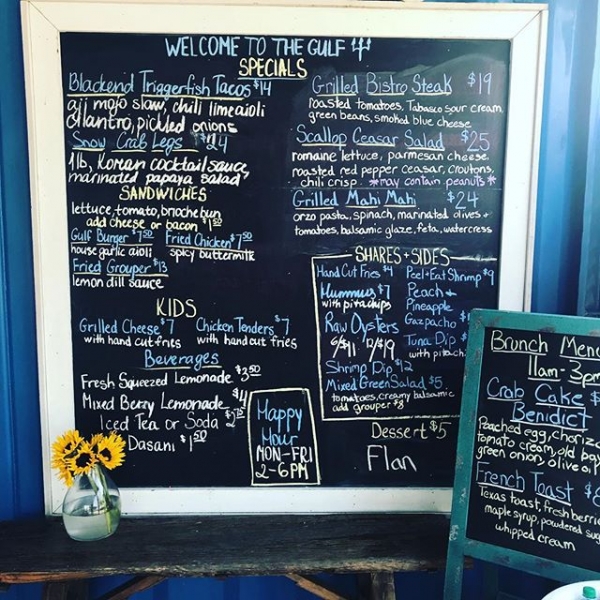 WELCOME TO THE GULF
SPECIALS
Blackend Triggerfish Tacos $14
aji mojo slaw, chili lime aioli
cilantro, pickled onions
Snow Crab Legs
1lb, Korean cocktail sauce,
marinated papaya salad
SANDWICHES
lettuce, tomato, brioche bun
add cheese or bacon $1.50
Gulf Burger $7.50
house garlic aioli
Fried Chicken $7.50
spicy buttermilk
Fried Grouper $13
lemon dill sauce
KIDS
Grilled Cheese $7
with hand cut fries
Chicken Tenders $7
with hand cut fries
Beverages
Fresh Squeezed Lemonade $3.50
Mixed Berry Lemonade $4
Iced Tea or Soda
Dasani $1.50
Happy
Hour
MON-FRI
2-6PM
Grilled Bistro Steak $19
roasted tomatoes, Tabasco sour cream
green beans, smoked blue cheese
Scallop Ceasar Salad $25
romaine lettuce, parmesan cheese
roasted red pepper ceasar, croutons,
chili crisp *may contain peanuts*
Grilled Mahi Mahi $24
orzo pasta, spinach, marinated olives +
tomatoes, balsamic glaze, feta, watercress
SHARES + SIDES
Hand Cut Fries $4
Hummus $7
with pita chips
Raw Oysters
6/$11 12/$19
Shrimp Dip $12
Mixed Green Salad $5
tomatoes, creamy balsamic
add grouper $8
Peel + Eat Shrimp $9
Peach +
Pineapple
Gazpacho
Tuna Dip
with pita ch
Dessert $5
Flan
Brunch Menu
11am-3pm
Crab Cake $
Benidict
Poached egg, chorizo
tomato cream, old bay
green onion, olive oil
French Toast $
Texas toast, fresh berrie
maple syrup, powdered sug
whipped cream